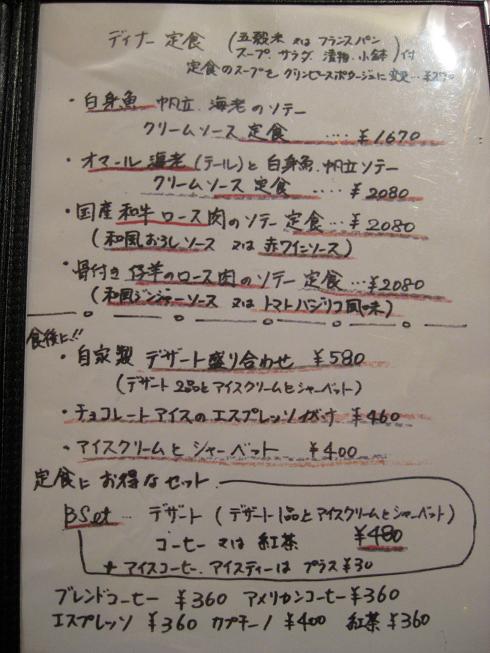 ディナー 定食 (五穀米 又は フランスパン
スープ、サラダ、漬物、小鉢)付
定食のスープを グリンピースポタージュに変更…
・白身魚 帆立、海老のソテー
クリームソース 定食 ‥‥ ¥1,670
・オマール海老(テール)と白身魚、帆立ソテー
クリームソース 定食 ‥‥ ¥2080
・国産和牛ロース肉のソテー 定食… ¥2080
(和風おろしソース 又は 赤ワインソース)
・骨付き仔羊のロース肉のソテー 定食…¥2080
(和風ジンジャーソース 又は トマトバジリコ風味)
食後に!!
・自家製 デザート盛り合わせ ¥580
(デザート2品とアイスクリームとシャーベット)
・チョコレートアイスのエスプレッソがけ ¥460
・アイスクリームと シャーベット ¥400
定食に お得なセット
BSet… デザート (デザート1品とアイスクリームとシャーベット)
コーヒー 又は 紅茶 ¥480
+ アイスコーヒー、アイスティーは プラス¥30
ブレンドコーヒー ¥360 アメリカンコーヒー¥360
エスプレッソ ¥360 カプチーノ ¥400 紅茶 ¥360